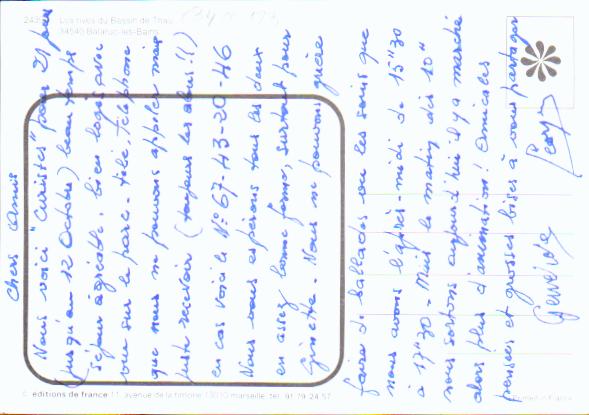 Les rives du Bassin de Thau
34540 Balaruc-les-Bains
Chers Amis
Nous voici "Curistes" pour 21 jours
jusqu'au 12 Octobre) beau temps
séjour agréable, bien logés avec
vue sur le parc - télé, téléphone
que nous ne pouvons appeler mais
juste recevoir (toujours les abus!!)
en cas voici le N° 67-43-20-46
Nous vous espérons tous les deux
en assez bonne forme, surtout pour
Ginette - Nous ne pouvons guère
faire de ballades ou les soins que
nous avons l'après-midi de 15h30
à 17h30 - Mais le matin dès 10h
nous sortons aujourd'hui il y a marché
alors plus d'animation! Amicales
pensées et grosses bises à vous partager
Geneviève
© editions de france 11, avenue de la timone 13010 marseille, tel. 91 79 24 57
Printed in France